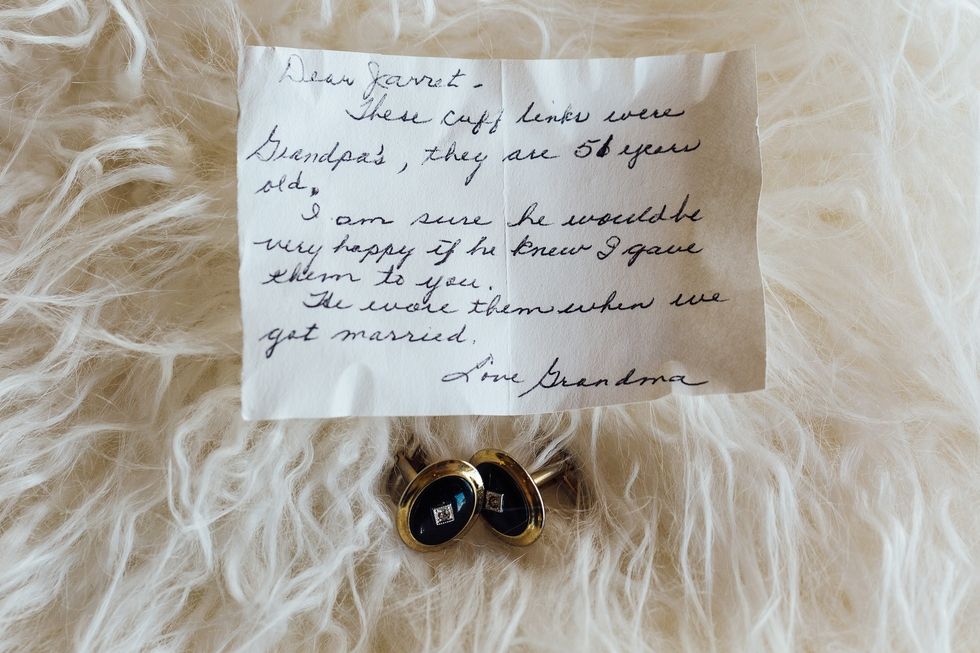 Dear Jarret -
These cuff links were
Grandpa's, they are 51 years
old.
I am sure he would be
very happy if he knew I gave
them to you.
He wore them when we
got married.
Love Grandma